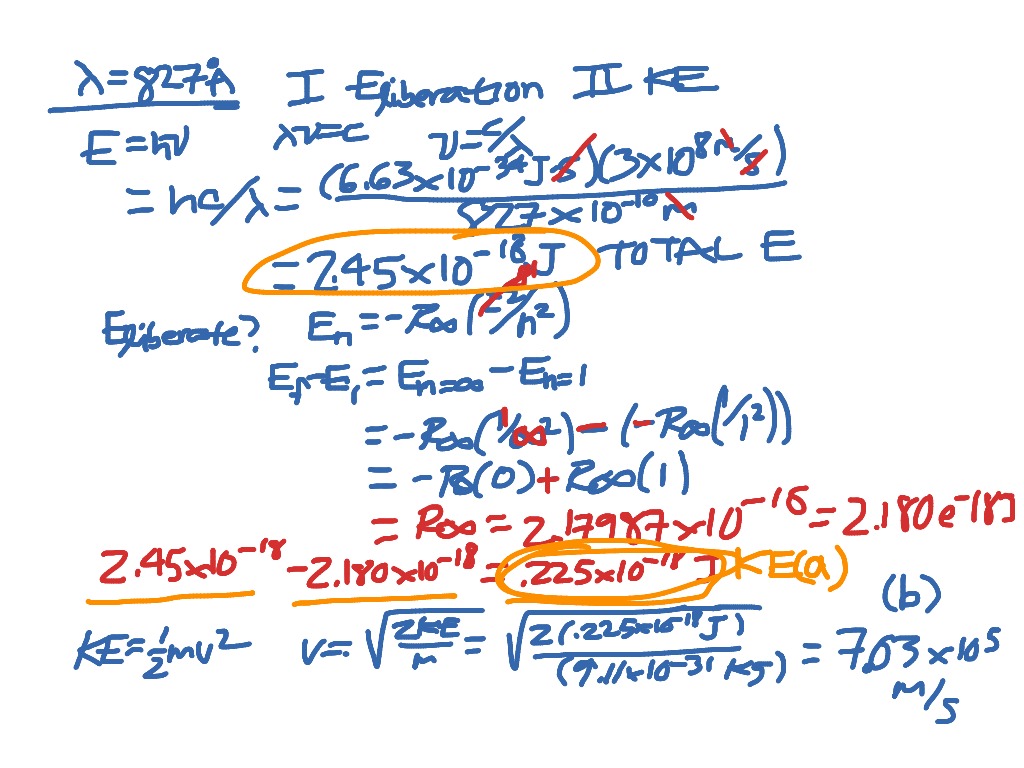 λ=827Å I Eliberation II KE
E=hν λν=c ν=c/λ
= hc/λ = (6.63x10⁻³⁴J s)(3x10⁸ m/s)
827 x 10⁻¹⁰ m
= 2.45x10⁻¹⁸ J TOTAL E
Eliberate? Eₙ = -R∞(Z²/n²)
E_f-E_i = E_n=∞ - E_n=1
= -R∞(1/∞²) - (-R∞(1/1²))
= -R(0) + R∞(1)
= R∞ = 2.17987x10⁻¹⁸ = 2.180e⁻¹⁸J
2.45x10⁻¹⁸ - 2.180x10⁻¹⁸ = .225x10⁻¹⁸ J KE(a)
(b)
KE=½mv² v= √2KE/m = √2(.225x10⁻¹⁸J)/(9.11x10⁻³¹kg) = 7.03x10⁵
m/s